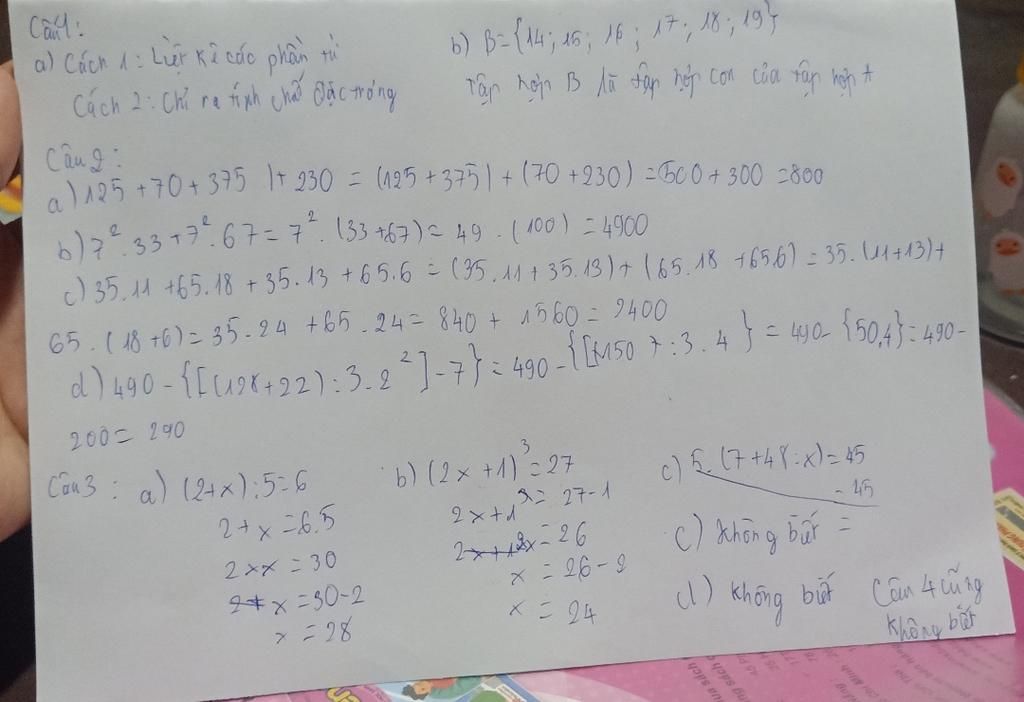 Câu 1:
a) Cách 1: Liệt kê các phần tử
Cách 2: Chỉ ra tính chất đặc trưng
b) B = {14; 15; 16; 17; 18; 19}
Tập hợp B là tập hợp con của tập hợp A
Câu 2:
a) 125 + 70 + 375 + 230 = (125 + 375) + (70 + 230) = 500 + 300 = 800
b) 7². 33 + 7². 67 = 7². (33 + 67) = 49 . (100) = 4900
c) 35.11 + 65.18 + 35.13 + 65.6 = (35.11 + 35.13) + (65.18 + 65.6) = 35.(11+13) +
65. (18 + 6) = 35.24 + 65.24 = 840 + 1560 = 2400
d) 490 - {[(128+22) : 3.2²] - 7} = 490 - {[150 : 3.4} = 490 - {50.4} = 490 -
200 = 290
Câu 3: a) (2+x) : 5 = 6
2 + x = 6.5
2 + x = 30
x = 30 - 2
x = 28
b) (2x + 1)³ = 27
2x + 1 = 27 - 1
= 26
x = 26 - 2
x = 24
c) 5. (7 + 48 : x) = 45
- 45
c) Không biết =
d) Không biết
Câu 4 cũng
không biết